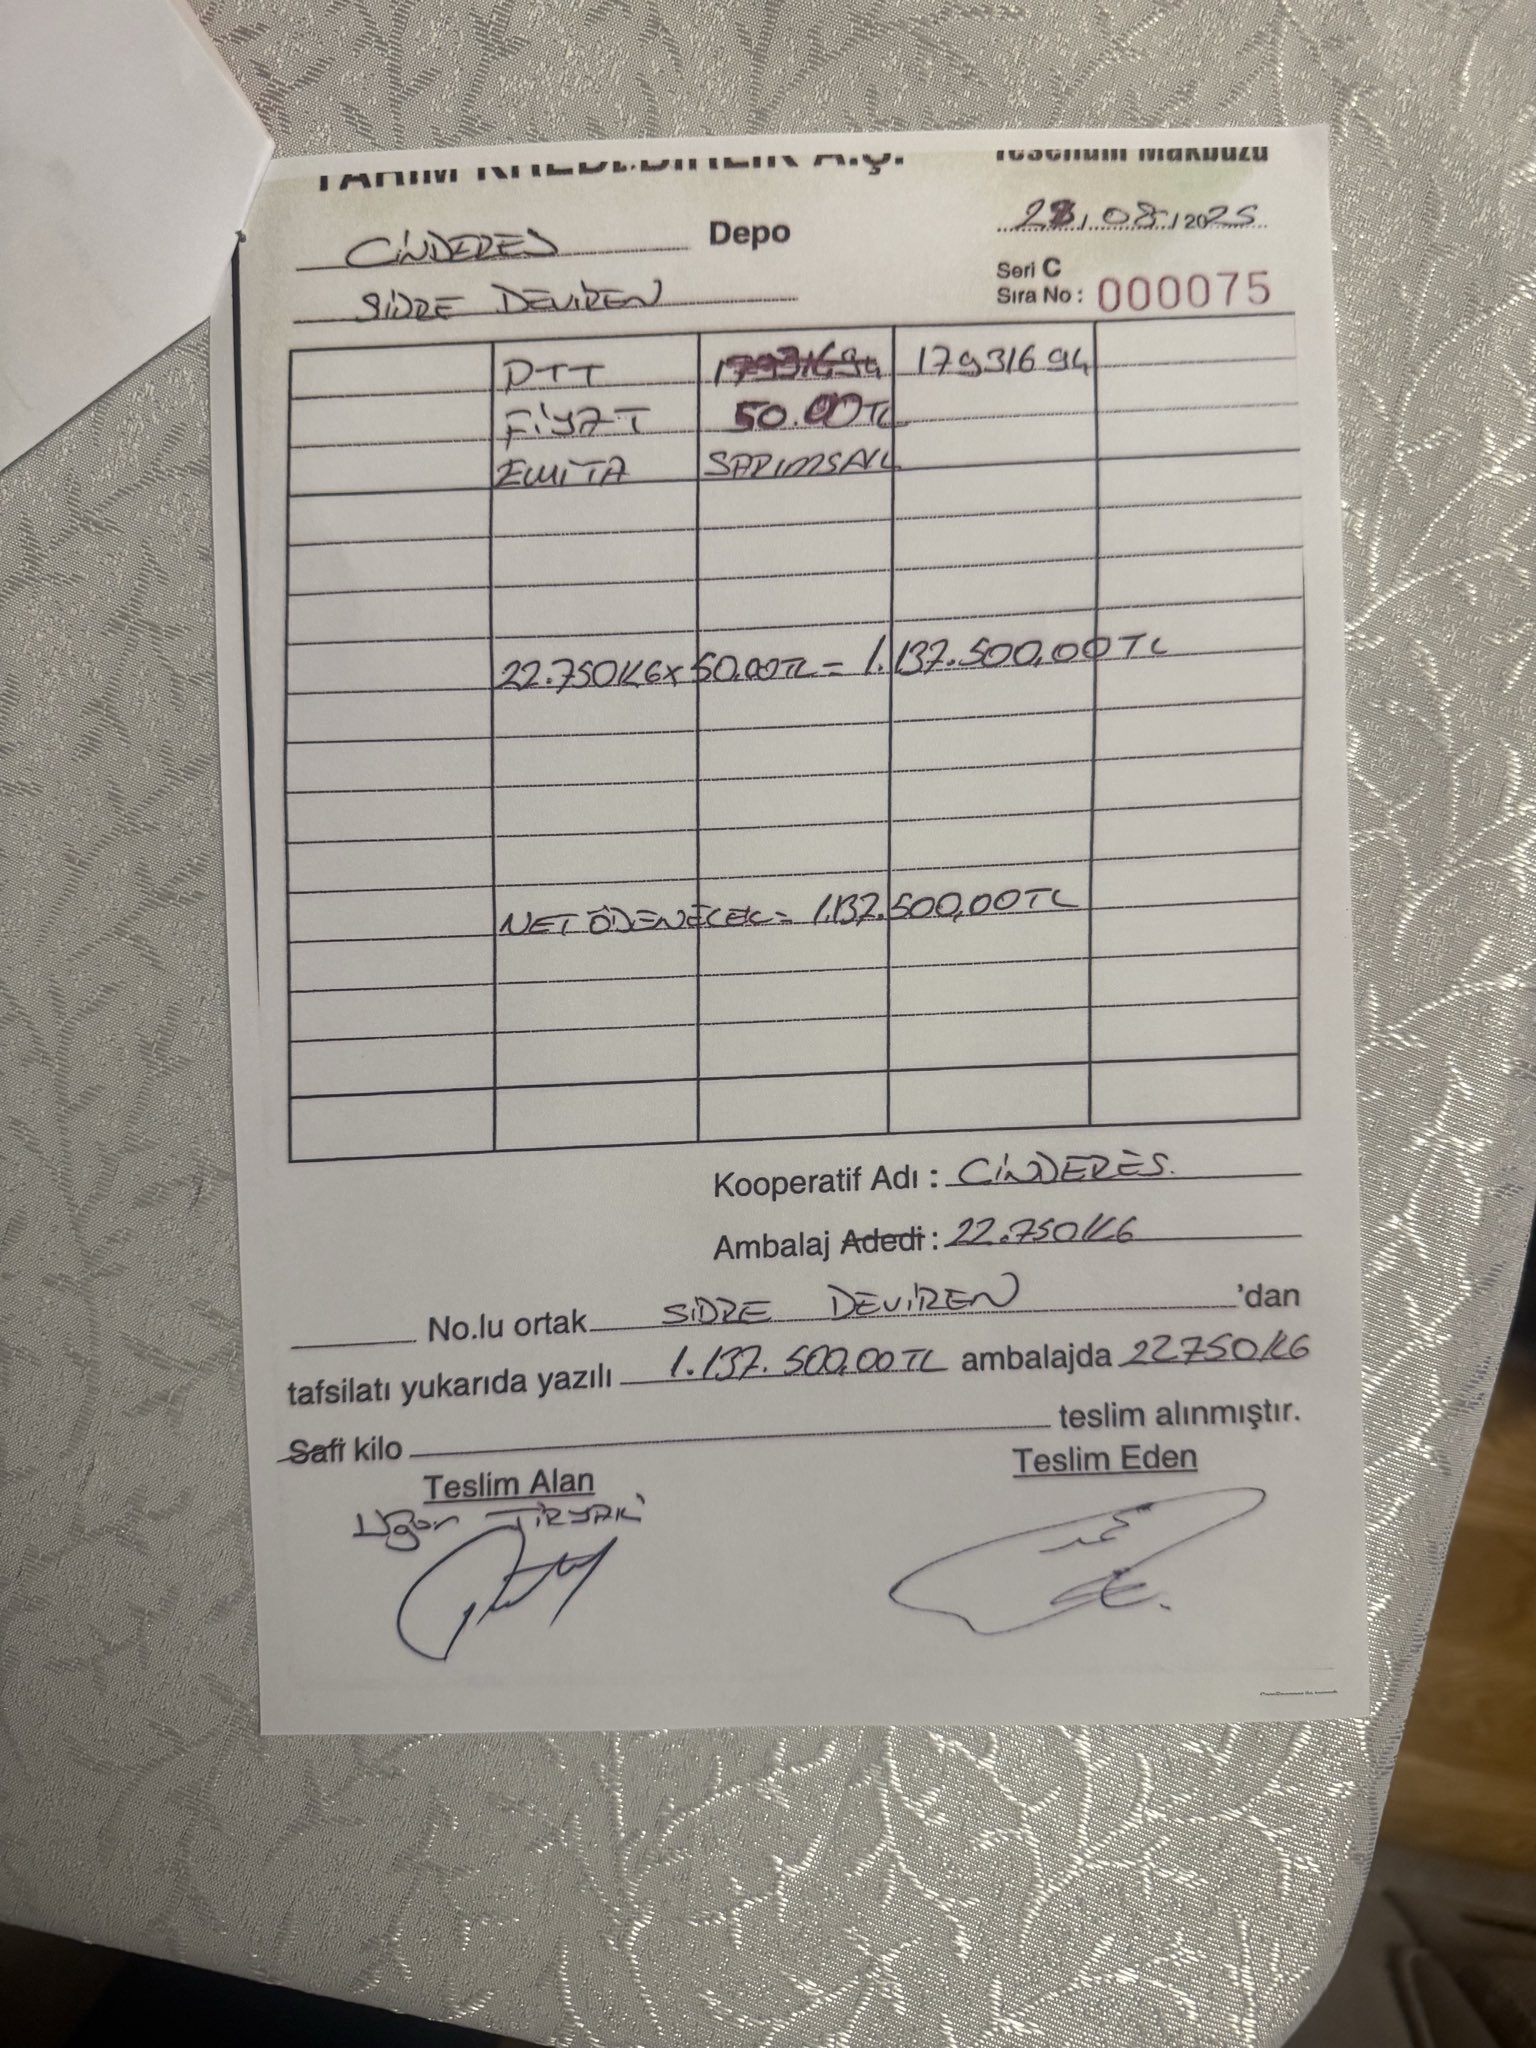 TARIM KREDİ BİRLİK A.Ş. Tesellüm Makbuzu
CİNDERES Depo /08/2025
SİDRE DEVİREN
Seri C
Sıra No: 000075
DTT 17931694 17931694
FİYAT 50.00TL
EMİTA SAPIMSAK
22.750KG x 50.00TL = 1.137.500,00TL
NET ÖDENECEK = 1.137.500,00TL
Kooperatif Adı : CİNDERES.
Ambalaj Adedi : 22.750KG
No.lu ortak SİDRE DEVİREN 'dan
tafsilatı yukarıda yazılı 1.137.500,00TL ambalajda 22750KG
Safi kilo teslim alınmıştır.
Teslim Alan Teslim Eden
Uğur TİRYAKİ